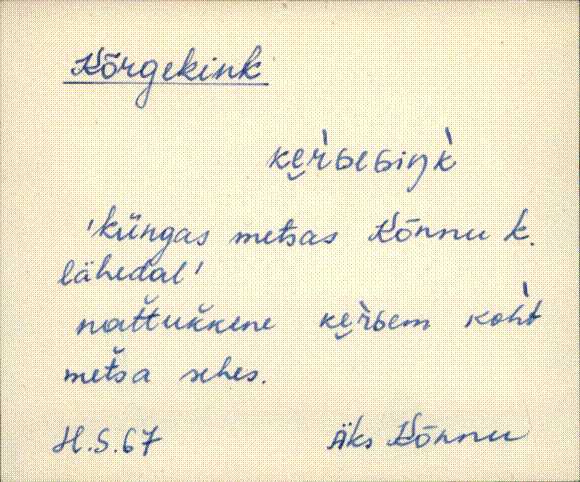 Kõrgekink
ke̮r̀ɢeɢiŋk̀
'küngas metsas Kõnnu k.
lähedal'
nat̆tuk̆kene ke̮r̀ɢem koh̀t
met̆sa sehes.
H.S.67 Äks Kõnnu